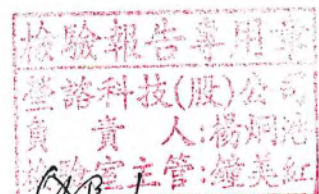 檢驗報告專用章
科技(股)公司
負責人:楊炯
驗室主管:美紅